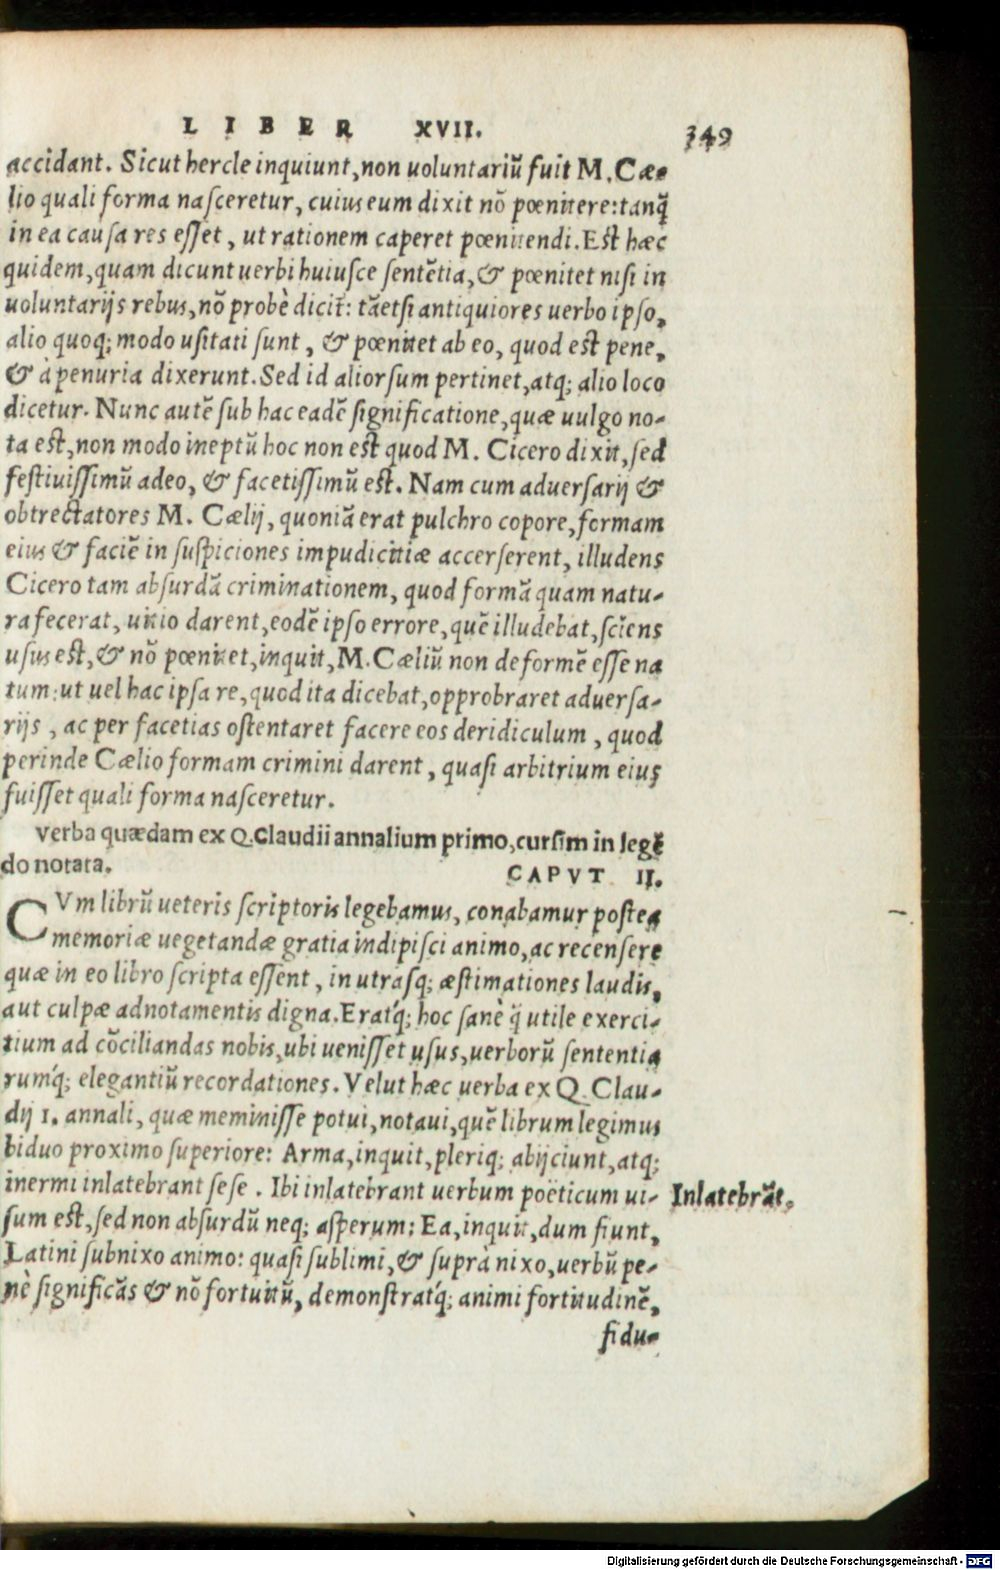 LIBER XVII. 349
accidant. Sicut hercle inquiunt, non uoluntariũ fuit M. Cæ-
lio quali forma nasceretur, cuius eum dixit nõ pœnitere: tanq̃
in ea causa res esset, ut rationem caperet pœnitendi. Est hæc
quidem, quam dicunt uerbi huiusce sentẽtia, & pœnitet nisi in
uoluntarijs rebus, nõ probè dicit̃: tãetsi antiquiores uerbo ipso,
alio quoq; modo usitati sunt, & pœnitet ab eo, quod est pene,
& à penuria dixerunt. Sed id aliorsum pertinet, atq; alio loco
dicetur. Nunc autẽ sub hac eadẽ significatione, quæ uulgo no-
ta est, non modo ineptũ hoc non est quod M. Cicero dixit, sed
festiuissimũ adeo, & facetissimũ est. Nam cum aduersarij &
obtrectatores M. Cælij, quoniã erat pulchro copore, formam
eius & faciẽ in suspiciones impudicitiæ accerserent, illudens
Cicero tam absurdã criminationem, quod formã quam natu-
ra fecerat, uitio darent, eodẽ ipso errore, quẽ illudebat, sciẽns
usus est, & nõ pœnitet, inquit, M. Cæliũ non deformẽ esse na
tum: ut uel hac ipsa re, quod ita dicebat, opprobraret aduersa-
rijs, ac per facetias ostentaret facere eos deridiculum, quod
perinde Cælio formam crimini darent, quasi arbitrium eius
fuisset quali forma nasceretur.
Verba quædam ex Q. Claudii annalium primo, cursim in legẽ
do notata. CAPVT II.
CVm librũ ueteris scriptoris legebamus, conabamur postea
memoriæ uegetandæ gratia indipisci animo, ac recensere
quæ in eo libro scripta essent, in utrasq; æstimationes laudis,
aut culpæ adnotamentis digna. Eratq́; hoc sanè q̃ utile exerci-
tium ad cõciliandas nobis, ubi uenisset usus, uerborũ sententia
rumq́; elegantiũ recordationes. Velut hæc uerba ex Q. Clau-
dij 1. annali, quæ meminisse potui, notaui, quẽ librum legimus
biduo proximo superiore: Arma, inquit, pleriq; abijciunt, atq;
inermi inlatebrant sese. Ibi inlatebrant uerbum poëticum ui- Inlatebrãt.
sum est, sed non absurdũ neq; asperum: Ea, inquit, dum fiunt,
Latini subnixo animo: quasi sublimi, & suprà nixo, uerbũ pe-
nè significãs & nõ fortuitũ, demonstratq́; animi fortitudinẽ,
fidu-
Digitalisierung gefördert durch die Deutsche Forschungsgemeinschaft - DFG